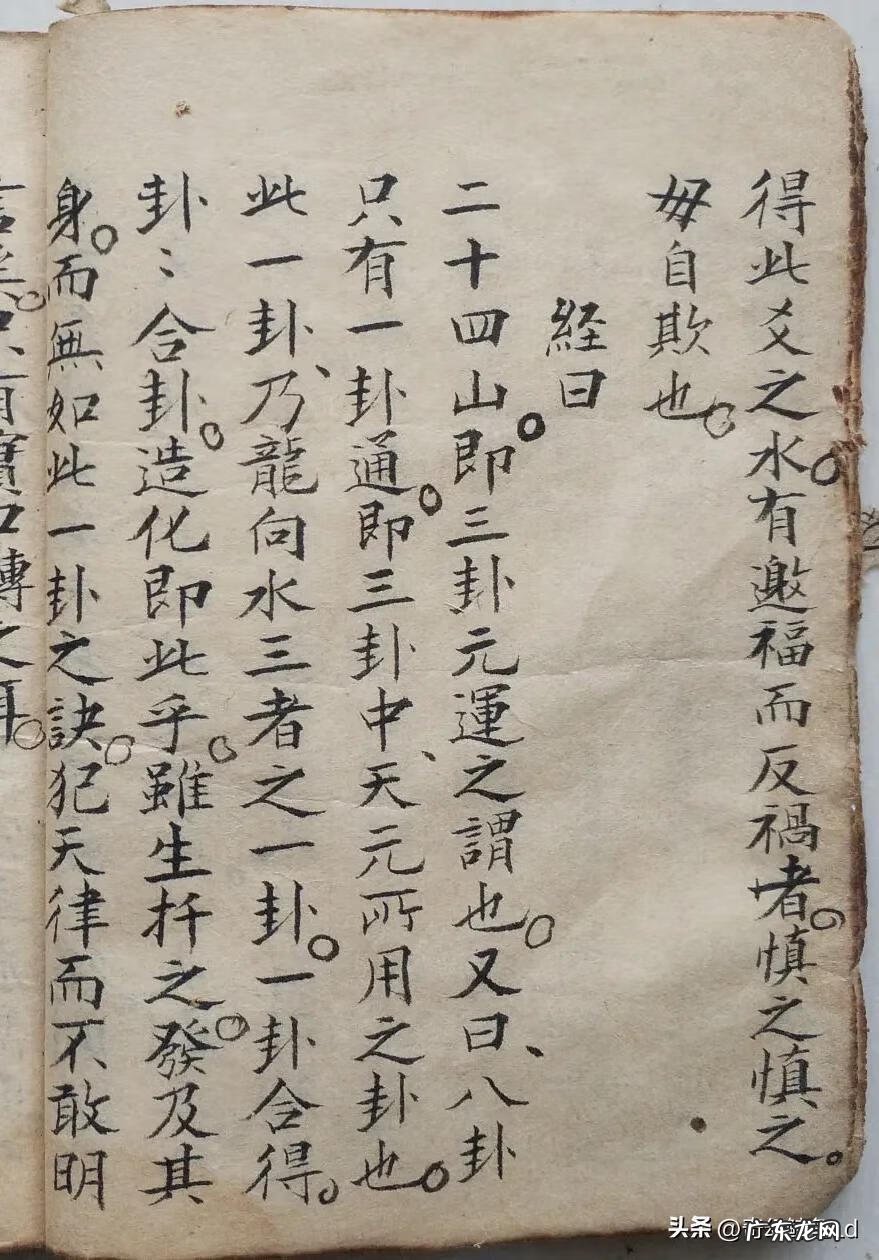 得此爻之水。有邀福而反禍者。慎之慎之。
毋自欺也。
経曰
二十四山。即三卦元運之謂也。又曰、八卦
只有一卦通。即三卦中、天元所用之卦也。
此一卦、乃龍向水三者之一卦。一卦合得。
卦〻合卦。造化即此乎。雖生扦之。發及其
身。而無如此一卦之訣。犯天律而不敢明
言矣。只有實口傳之耳。
头条 @广东龙网